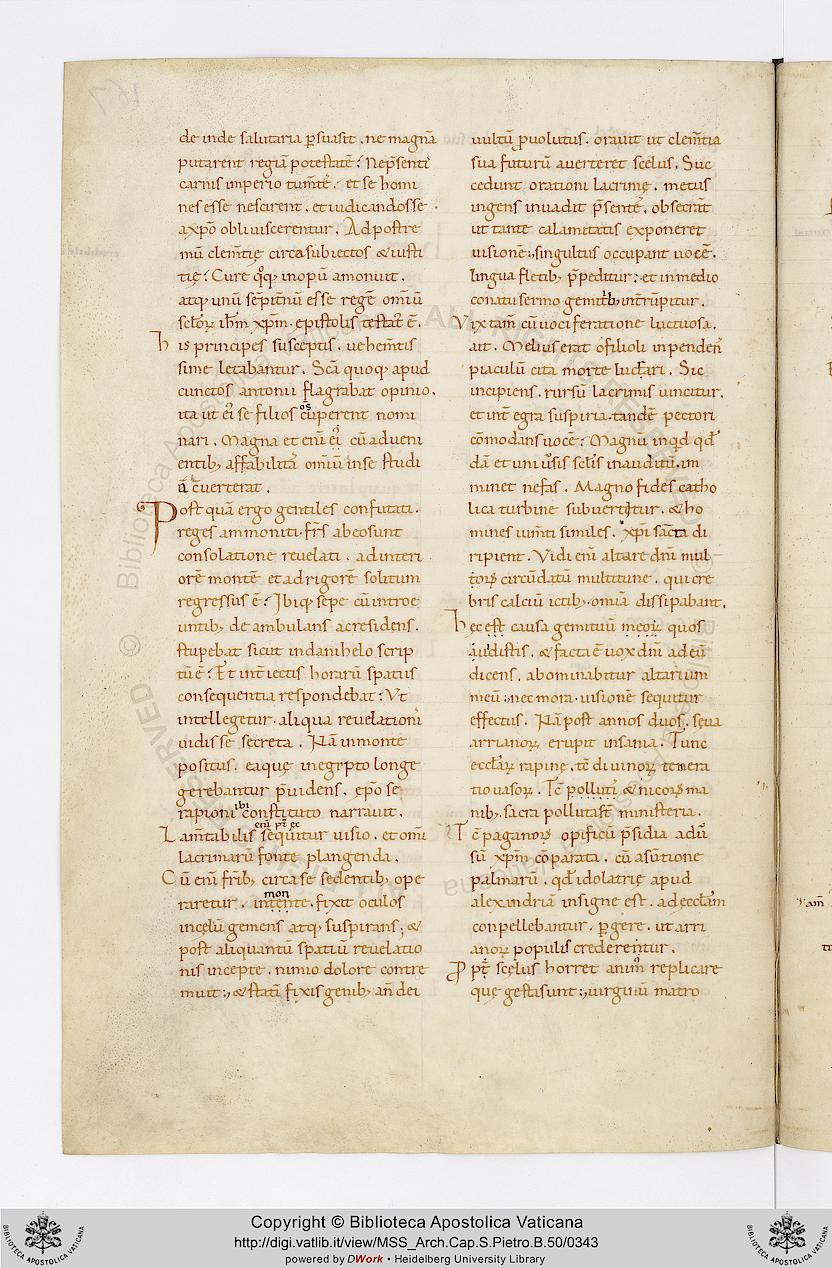 de inde salutaria p̱suasit . ne magnā
putarent regiā potestatē : Ne p̄senti
carnis imperio tum̄tē . et se homi
nes esse nescirent . et iudicandos se
a xp̄o obliviscerentur . Ad postre
mū clem̄tię circa subiectos & iusti
tię : Curę q̊q inopū amonuit .
atq; unū sēpit̄nū esse regē omiū
sc̄lor̄ ih̄m xp̄m . epistolis testat̄ ē .
his principes susceptis . vehem̄tis
sime letabantur . Sc̄ā quoq; apud
cunctos antonii flagrabat opinio .
ita ut ei se filios cuperent nomi
nari . Magna et enī ei cū adveni
entib; affabilitas omiū in se studi
ū c̄verterat .
Post quā ergo gentiles confutati .
reges ammoniti . fr̄s abeo sunt
consolatione revelati . ad interi
orē montē et ad rigorē solitum
regressus ē : Ibiq; sepe cū introe
untib; deambulans ac residens .
stupebat sicut in danihelo scrip
tū ē : Et int̄iectis horarū spatiis
consequentia respondebat : Ut
intellegetur . aliqua revelationū
vidisse secreta . Nā in monte
positus . eaque in egypto longe
gerebantur p̄videns . ep̄o se
rapioni ibi constituto narravit .
Lam̄tabilis enī sequitur visio . et omī
lacrimarū fonte plangenda .
Cū enī fr̄ib; circa se sedentib; ope
raretur . intente . fixit oculos
in celū gemens atq; suspirans ; &
post aliquantū spatiū revelatio
nis incepte . nimio dolore contre
muit ; & statī fixis genib; an̄ dei
vultū p̱volutus . oravit ut clem̄tia
sua futurū averteret scelus . Suc
cedunt orationi lacrimę . metus
ingens invadit p̄sentes . obsecrāt
ut tante calamitatis exponeret
visionē ; singultus occupant vocē .
lingua fletib; p̄peditur ; et in medio
conatu sermo gemitib; int̄rūpitur .
Vix tam̄ cū vociferatione luctuosa .
ait . Melius erat o filioli inpenden̄
piaculū cita morte lucrari . Sic
incipiens . rursū lacrimis vincitur .
et int̄ egra suspiria . tandē pectori
cōmodans vocē : Magnū inq̄d qd̄
dā et universis sc̄lis inauditū im
minet nefas . Magno fides catho
lica turbine subvertitur . & ho
mines ium̄ti similes . xp̄i sācta di
ripient . Vidi enī altare dn̄i mul
torū circūdatū multitune . qui cre
bris calciū ictib; omia dissipabant .
hec est causa gemituū meorū quos
audistis . & facta ē vox dn̄i ad eū
dicens . abominabitur altarium
meū ; nec mora . visionē sequitur
effectus . Nā post annos duos . seva
arrianorū erupit insania . Tunc
eccl̄arū rapinę . tc̄ divinorū temera
tio vasorū . Tc̄ pollutis & nicorū ma
nib; . sacra polluta st̄ ministeria .
Tc̄ paganorū opificū p̄sidia adū
sū xp̄m cōparata . cū asūtione
palmarū . qd̄ idolatrię apud
alexandriā insigne est . ad eccl̄am
conpellebantur . p̱gere . ut arri
anorū populis crederentur .
Ppt̄ scelus horret anim̄ replicare
quę gesta sunt ; virginū matro
Copyright © Biblioteca Apostolica Vaticana
http://digi.vatlib.it/view/MSS_Arch.Cap.S.Pietro.B.50/0343
powered by DWork • Heidelberg University Library